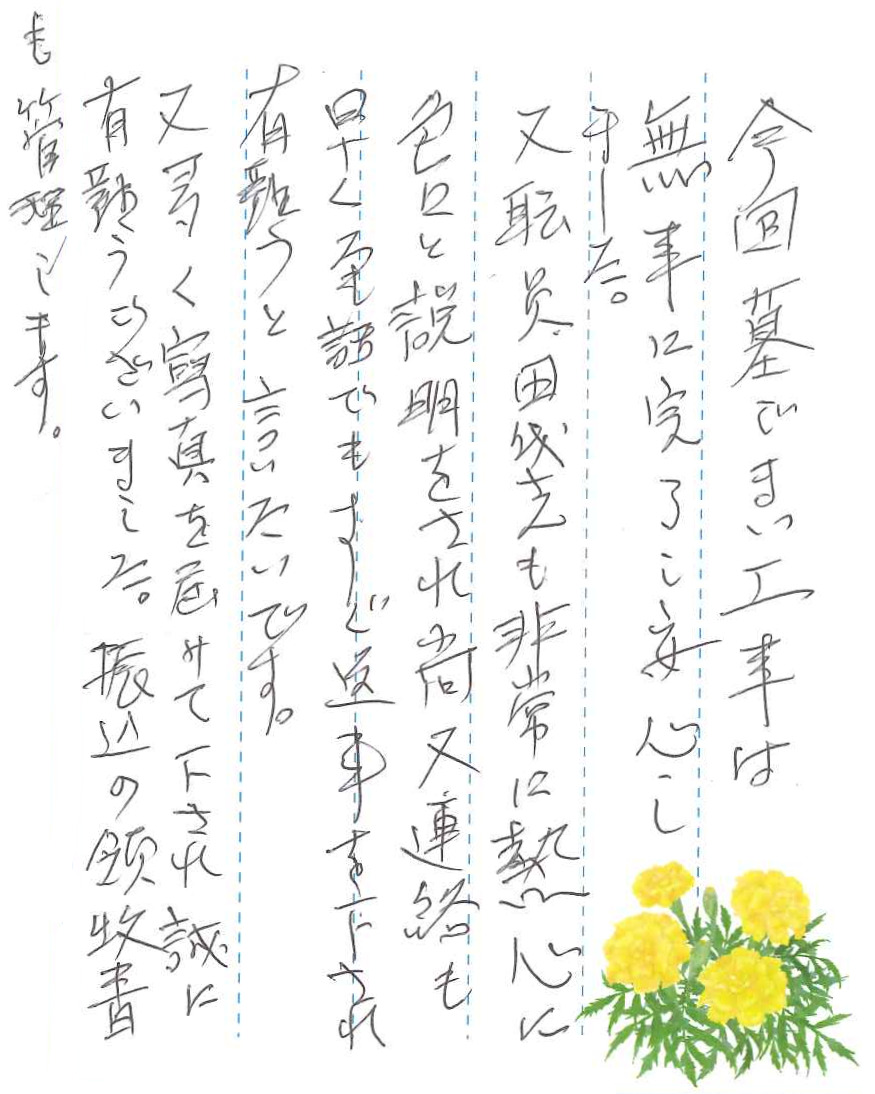 今回墓じまい工事は
無事に完了し安心し
ました。
又職員田代さんも非常に熱心に
色々と説明をされ尚又連絡も
早く電話でもすぐ返事を下され
有難うと言いたいです。
又多く寫真を届けて下され誠に
有難うございました。振込の領収書
も管理します。